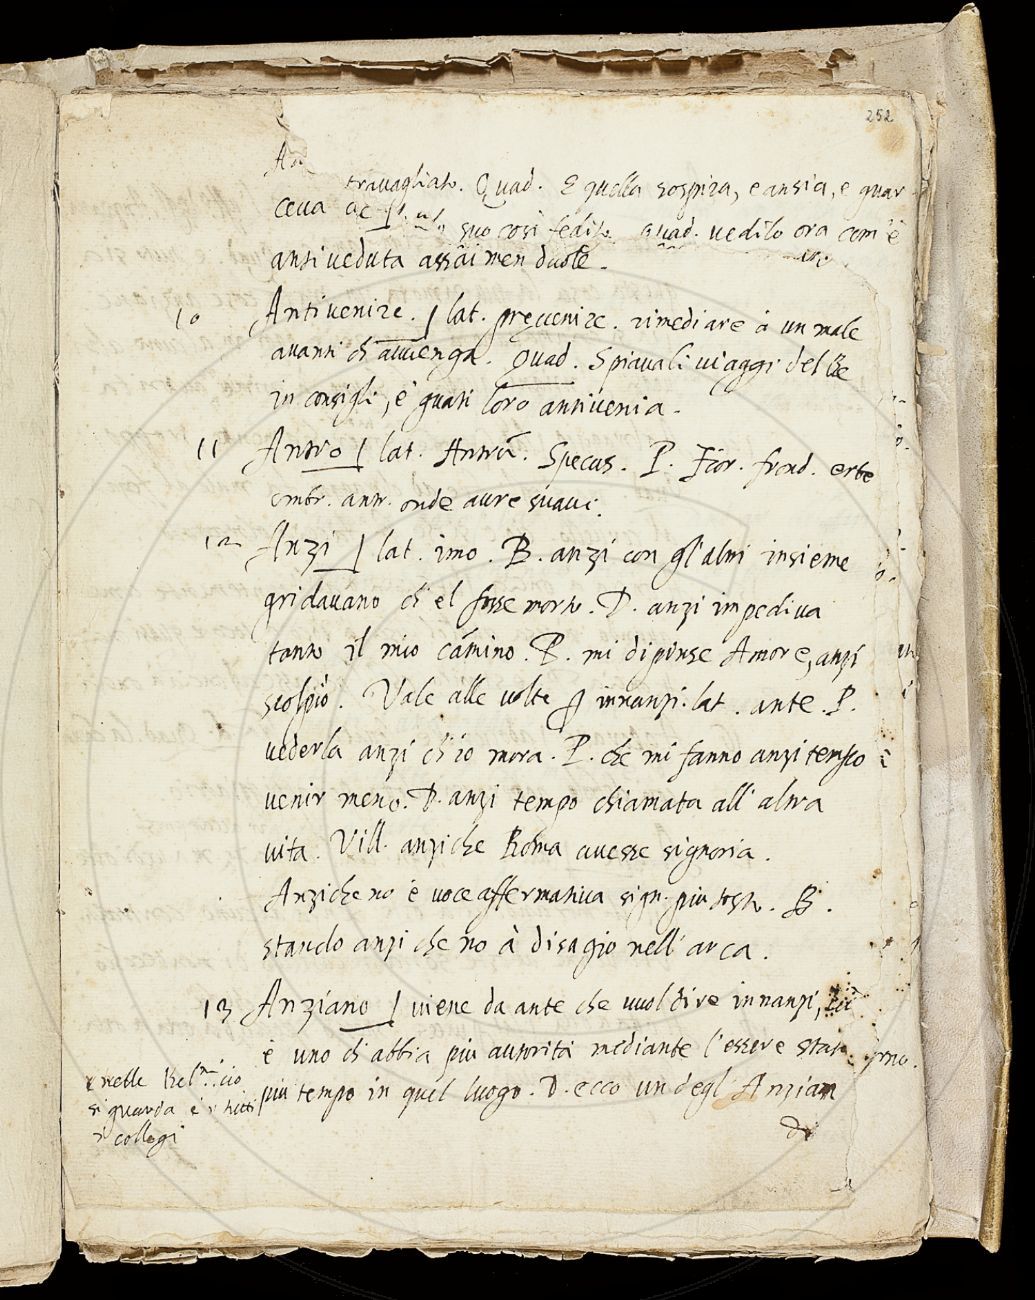 252
An
travagliato. Quad. E quella sospira, e ansia, e guar
ceva
suo così fedito quad. vedilo ora com'è
antiveduta assai men duole.
10 Antivenire / lat. prevenire. rimediare à un male
avanti ch'avvenga. Quad. Spiavali viaggi del Re
in consigli, e quasi loro antivenia.
11 Antro / lat. Antrū. Specus. P. Fior. frond. erbe
ombr. antr. onde aure suavi.
12 Anzi / lat. imo. B. anzi con gl'altri insieme
gridavano ch'el fosse morto. D. anzi impediva
tanto il mio camino. P. mi dipinse Amore, anzi
scolpio. Vale alle volte p innanzi. lat. ante. P.
vederla anzi ch'io mora. P. che mi fanno anzi tempo
venir meno. D. anzi tempo chiamata all'altra
vita. Vill. anziche Roma avesse signoria.
Anziche no è voce affermativa sign. piu tosto. B.
stando anzi che no à disagio nell'arca.
13 Anziano / viene da ante che vuol dire innanzi, cio
è uno ch'abbia piu autorità mediante l'essere stato pmo.
più tempo in quel luogo. D. ecco un degl'Anzian
e nelle Reln. cio
si guarda è
collegi
di